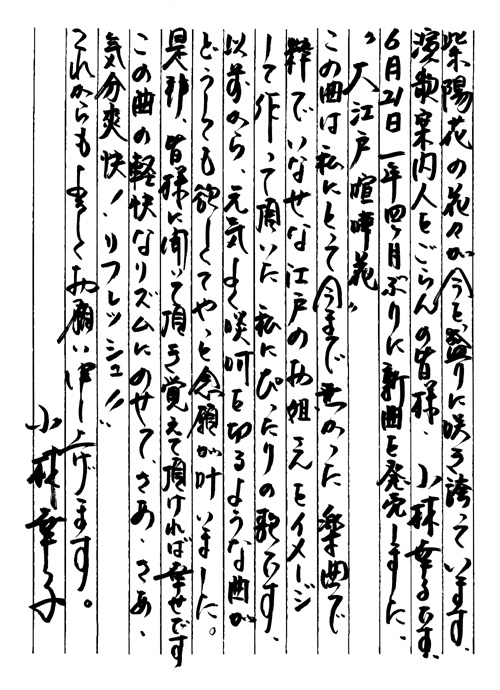 紫陽花の花々が今を盛りに咲き誇っています、
演歌案内人をごらんの皆様、小林幸子です、
6月21日一年四ヶ月ぶりに新曲を発売しました、
"大江戸喧嘩花"
この曲は私にとって今まで無かった楽曲で
粋でいなせな江戸のお姐さんをイメージ
して作って頂いた私にぴったりの歌です、
以前から、元気よく啖呵を切るような曲が
どうしても欲しくてやっと念願が叶いました。
是非、皆様に聞いて頂き覚えて頂ければ幸せです
この曲の軽快なリズムにのせて、さあ、さあ、
気分爽快!リフレッシュ!!
これからもよろしくお願い申し上げます。
小林幸子